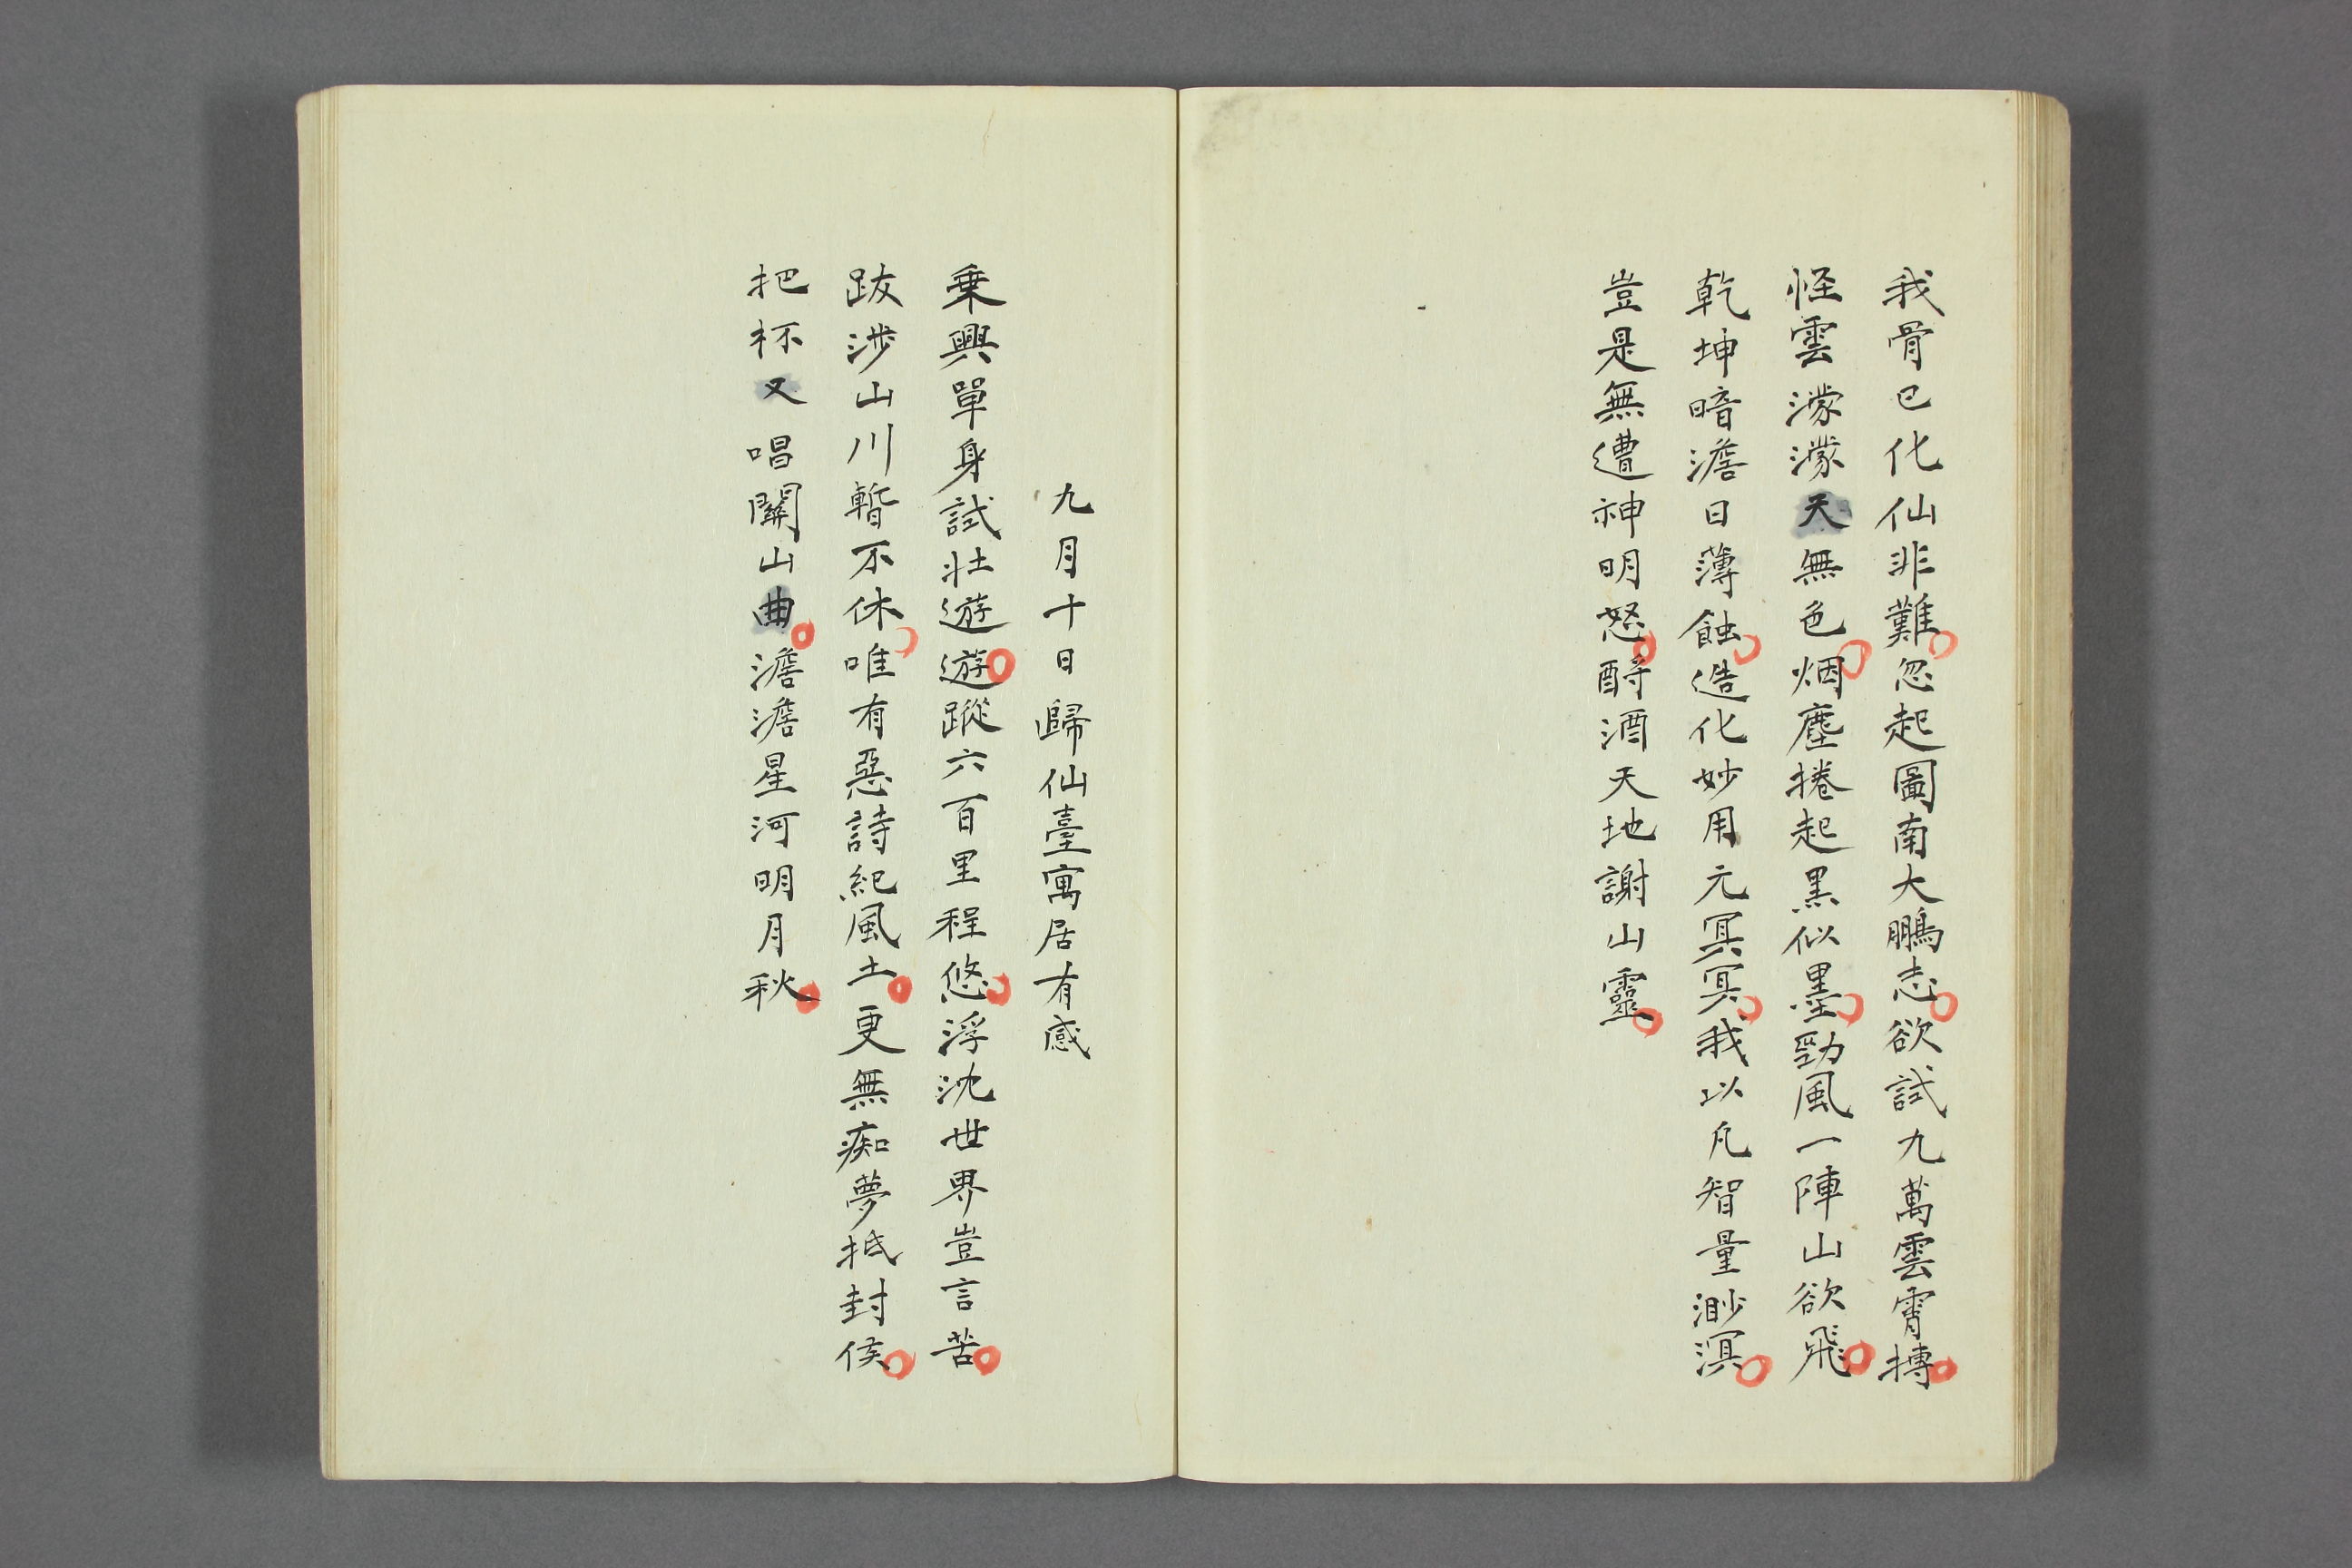 我骨已化仙非難忽起圖南大鵬志欲試九萬雲霄摶
怪雲濛濛天無色烟塵捲起黑似墨勁風一陣山欲飛
乾坤暗澹日薄蝕造化妙用元冥冥我以凡智量渺溟
豈是無遭神明怒酹酒天地謝山靈
九月十日歸仙臺寓居有感
乗興單身試壯遊遊蹤六百里程悠浮沈世界豈言苦
跋涉山川暫不休唯有惡詩紀風土更無痴夢抵封侯
把杯又唱關山曲澹澹星河明月秋